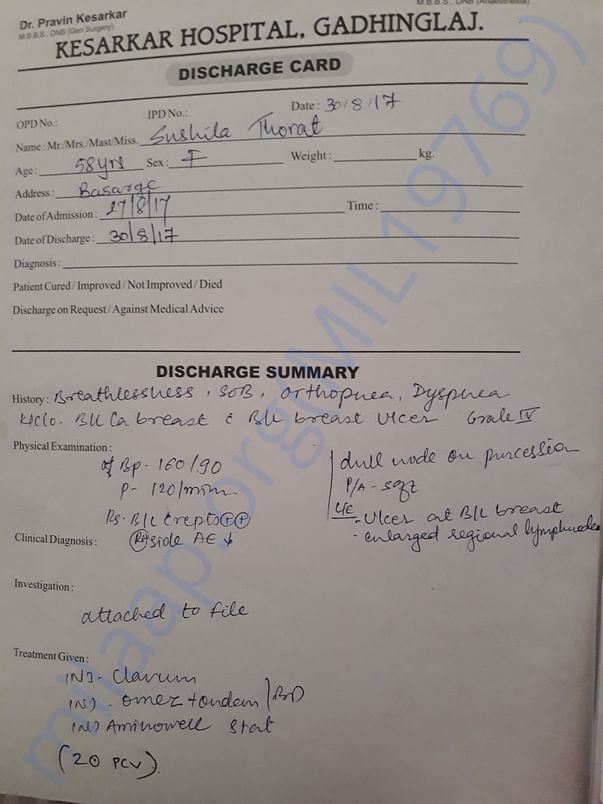 Dr. Pravin Kesarkar
M.B.B.S., DNB (Gen Surgery)
M.B.B.S., DNB (Anaesthesia)
KESARKAR HOSPITAL, GADHINGLAJ.
DISCHARGE CARD
OPD No.: IPD No.: Date: 30/8/17
Name: Mr./Mrs./Mast/Miss. Sushila Thorat
Age: 58yrs Sex: F Weight: kg.
Address: Basarge
Date of Admission: 27/8/17 Time:
Date of Discharge: 30/8/17
Diagnosis:
Patient Cured / Improved / Not Improved / Died
Discharge on Request / Against Medical Advice
DISCHARGE SUMMARY
History: Breathlessness, SOB, Orthopnea, Dyspnea
K/C/o- B/L Ca breast c̄ B/L breast Ulcer Grade IV
Physical Examination:
Bp - 160/90
P - 120/min
Rs- B/L crepts ++
dull node on percession
P/A - soft
L/E - Ulcer at B/L breast
- enlarged regional lymphnodes
Clinical Diagnosis: Rt side AE ↓
Investigation:
attached to file
Treatment Given:
INJ- Clavum
INJ - omez + ondem / BD
INJ Aminowell stat
(20 PCV).
milaap.org(MIL19769)